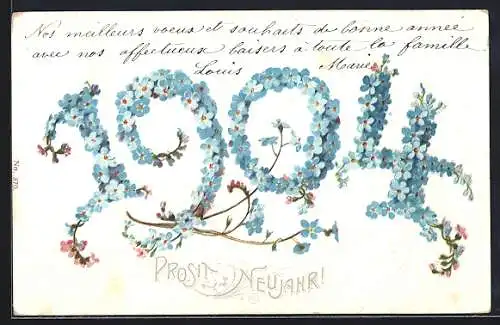 Nos meilleurs voeux et souhaits de bonne année
avec nos affectueux baisers à toute la famille
Louis Marie
1904
No. 375
PROSIT NEUJAHR!